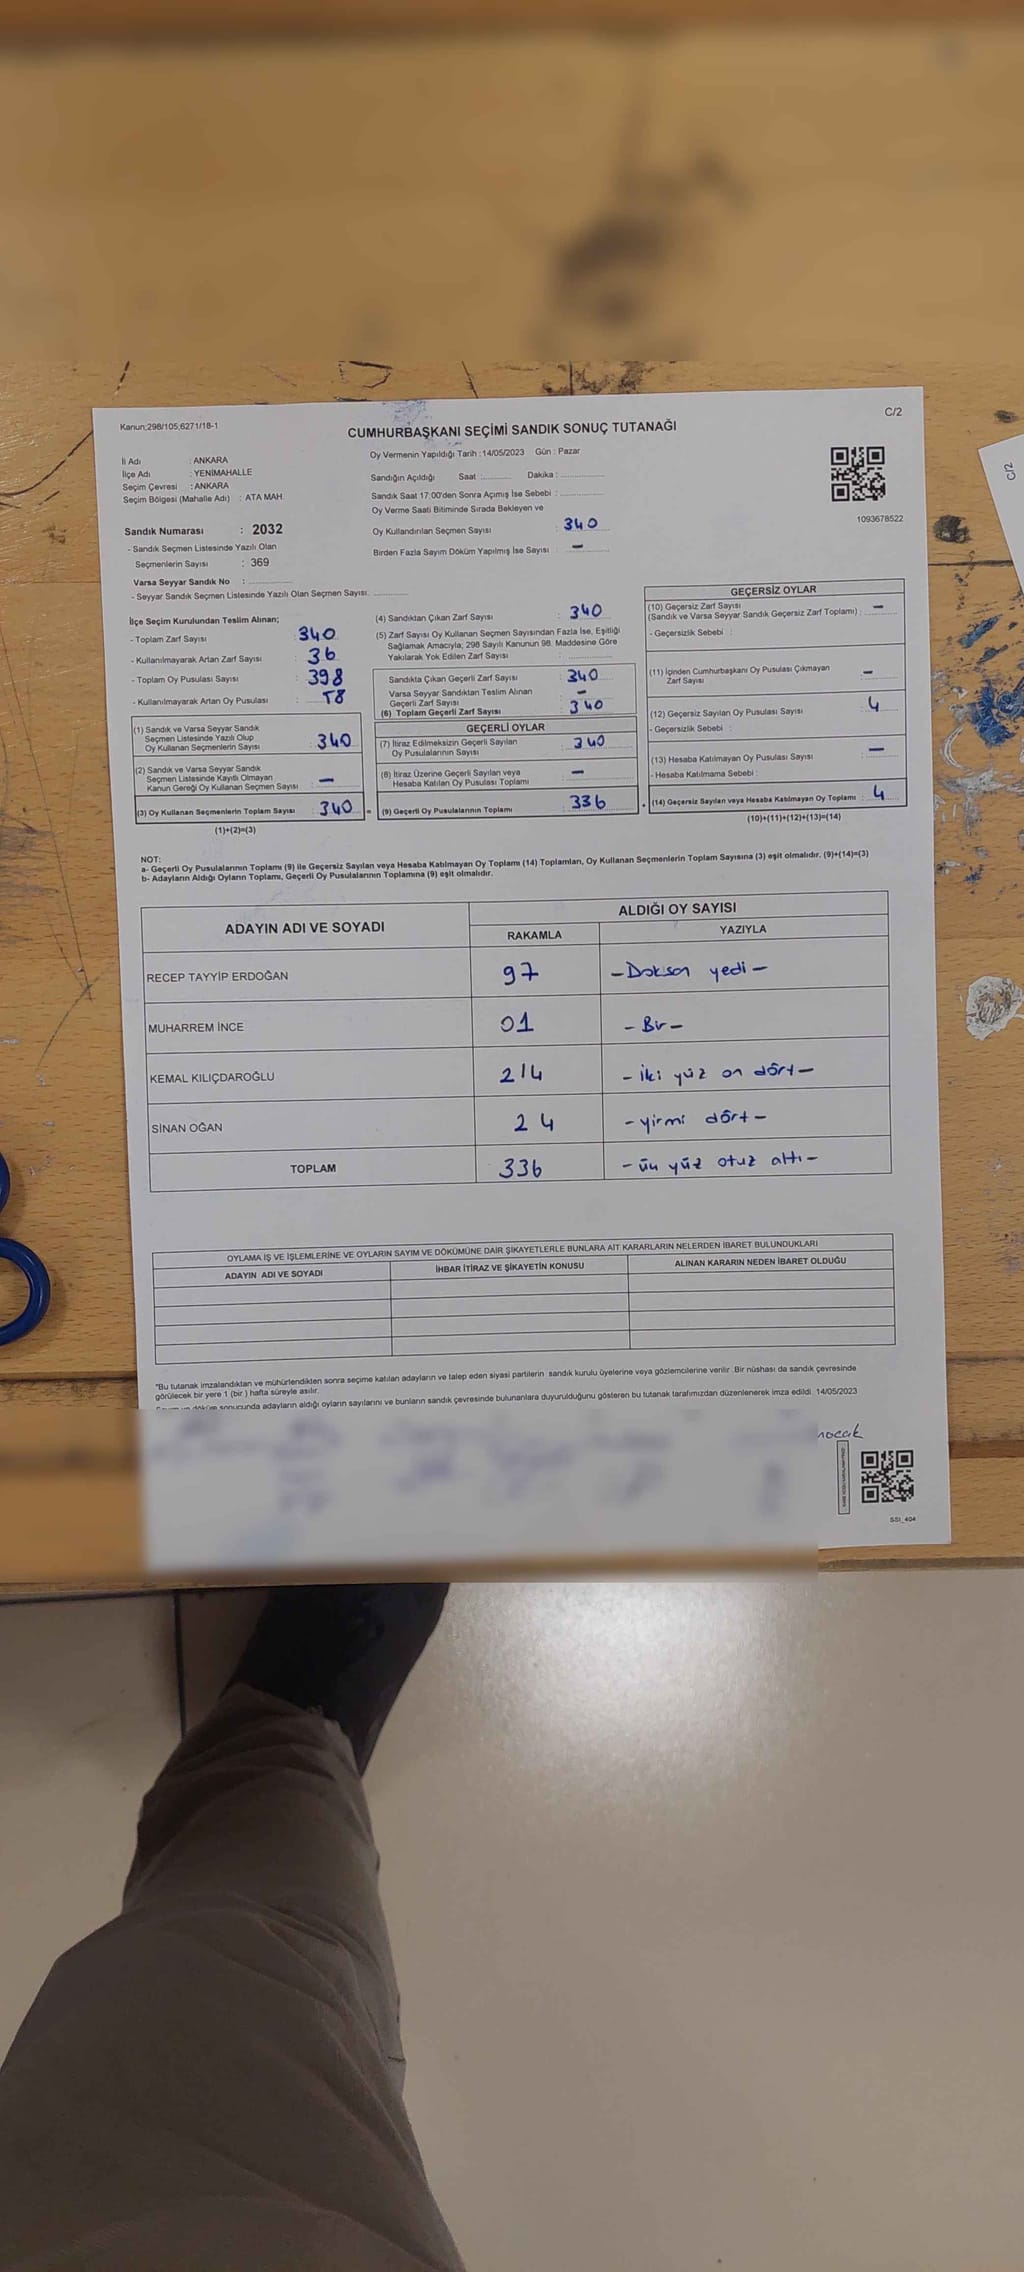 Kanun;298/105;6271/18-1
C/2
CUMHURBAŞKANI SEÇİMİ SANDIK SONUÇ TUTANAĞI
İl Adı : ANKARA
İlçe Adı : YENİMAHALLE
Seçim Çevresi : ANKARA
Seçim Bölgesi (Mahalle Adı) : ATA MAH.
Oy Vermenin Yapıldığı Tarih :14/05/2023 Gün : Pazar
Sandığın Açıldığı Saat :........... Dakika :...............
Sandık Saat 17:00'den Sonra Açımış İse Sebebi :...............
Oy Verme Saati Bitiminde Sırada Bekleyen ve
Oy Kullandırılan Seçmen Sayısı : 340
Birden Fazla Sayım Döküm Yapılmış İse Sayısı : –
1093678522
Sandık Numarası : 2032
- Sandık Seçmen Listesinde Yazılı Olan
Seçmenlerin Sayısı : 369
Varsa Seyyar Sandık No : ...............
- Seyyar Sandık Seçmen Listesinde Yazılı Olan Seçmen Sayısı. ............
İlçe Seçim Kurulundan Teslim Alınan;
- Toplam Zarf Sayısı : 340
- Kullanılmayarak Artan Zarf Sayısı : 36
- Toplam Oy Pusulası Sayısı : 398
- Kullanılmayarak Artan Oy Pusulası :
(1) Sandık ve Varsa Seyyar Sandık
Seçmen Listesinde Yazılı Olup
Oy Kullanan Seçmenlerin Sayısı : 340
(2) Sandık ve Varsa Seyyar Sandık
Seçmen Listesinde Kayıtlı Olmayan
Kanun Gereği Oy Kullanan Seçmen Sayısı : –
(3) Oy Kullanan Seçmenlerin Toplam Sayısı : 340 =
(1)+(2)=(3)
(4) Sandıktan Çıkan Zarf Sayısı : 340
(5) Zarf Sayısı Oy Kullanan Seçmen Sayısından Fazla İse, Eşitliği
Sağlamak Amacıyla; 298 Sayılı Kanunun 98. Maddesine Göre
Yakılarak Yok Edilen Zarf Sayısı : ............
Sandıkta Çıkan Geçerli Zarf Sayısı : 340
Varsa Seyyar Sandıktan Teslim Alınan
Geçerli Zarf Sayısı : –
(6) Toplam Geçerli Zarf Sayısı : 340
GEÇERLİ OYLAR
(7) İtiraz Edilmeksizin Geçerli Sayılan
Oy Pusulalarının Sayısı : 340
(8) İtiraz Üzerine Geçerli Sayılan veya
Hesaba Katılan Oy Pusulası Toplamı : –
(9) Geçerli Oy Pusulalarının Toplamı : 336
GEÇERSİZ OYLAR
(10) Geçersiz Zarf Sayısı
(Sandık ve Varsa Seyyar Sandık Geçersiz Zarf Toplamı) : –
- Geçersizlik Sebebi :
(11) İçinden Cumhurbaşkanı Oy Pusulası Çıkmayan
Zarf Sayısı : –
(12) Geçersiz Sayılan Oy Pusulası Sayısı : 4
- Geçersizlik Sebebi :
(13) Hesaba Katılmayan Oy Pusulası Sayısı : –
- Hesaba Katılmama Sebebi :
(14) Geçersiz Sayılan veya Hesaba Katılmayan Oy Toplamı : 4
(10)+(11)+(12)+(13)=(14)
NOT:
a- Geçerli Oy Pusulalarının Toplamı (9) ile Geçersiz Sayılan veya Hesaba Katılmayan Oy Toplamı (14) Toplamları, Oy Kullanan Seçmenlerin Toplam Sayısına (3) eşit olmalıdır. (9)+(14)=(3)
b- Adayların Aldığı Oyların Toplamı, Geçerli Oy Pusulalarının Toplamına (9) eşit olmalıdır.
ADAYIN ADI VE SOYADI
ALDIĞI OY SAYISI
RAKAMLA YAZIYLA
RECEP TAYYİP ERDOĞAN 97 –Doksan yedi–
MUHARREM İNCE 01 –Bir–
KEMAL KILIÇDAROĞLU 214 –iki yüz on dört–
SİNAN OĞAN 24 –yirmi dört–
TOPLAM 336 –üç yüz otuz altı–
OYLAMA İŞ VE İŞLEMLERİNE VE OYLARIN SAYIM VE DÖKÜMÜNE DAİR ŞİKAYETLERLE BUNLARA AİT KARARLARIN NELERDEN İBARET BULUNDUKLARI
ADAYIN ADI VE SOYADI İHBAR İTİRAZ VE ŞİKAYETİN KONUSU ALINAN KARARIN NEDEN İBARET OLDUĞU
"Bu tutanak imzalandıktan ve mühürlendikten sonra seçime katılan adayların ve talep eden siyasi partilerin sandık kurulu üyelerine veya gözlemcilerine verilir. Bir nüshası da sandık çevresinde
görülecek bir yere 1 (bir ) hafta süreyle asılır.
sonucunda adayların aldığı oyların sayılarını ve bunların sandık çevresinde bulunanlara duyurulduğunu gösteren bu tutanak tarafımızdan düzenlenerek imza edildi. 14/05/2023
SSI_404
C/2